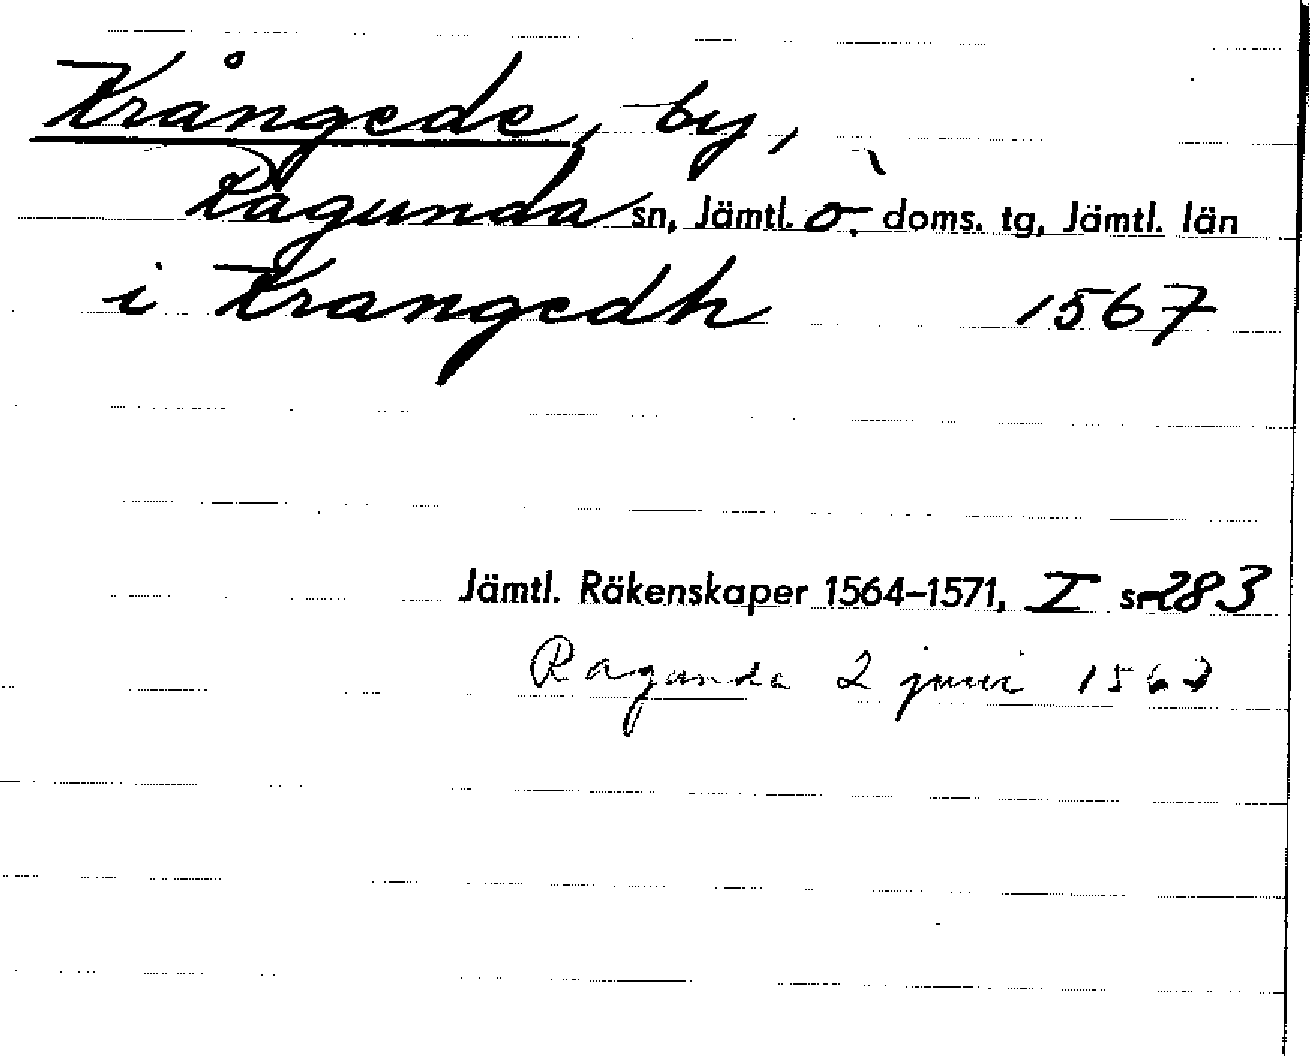 Krångede, by,
Ragunda sn, Jämtl. ö. doms. tg, Jämtl. län
i Krangedh 1567
Jämtl. Räkenskaper 1564–1571, I s. 283
Ragunda 2 juni 1567